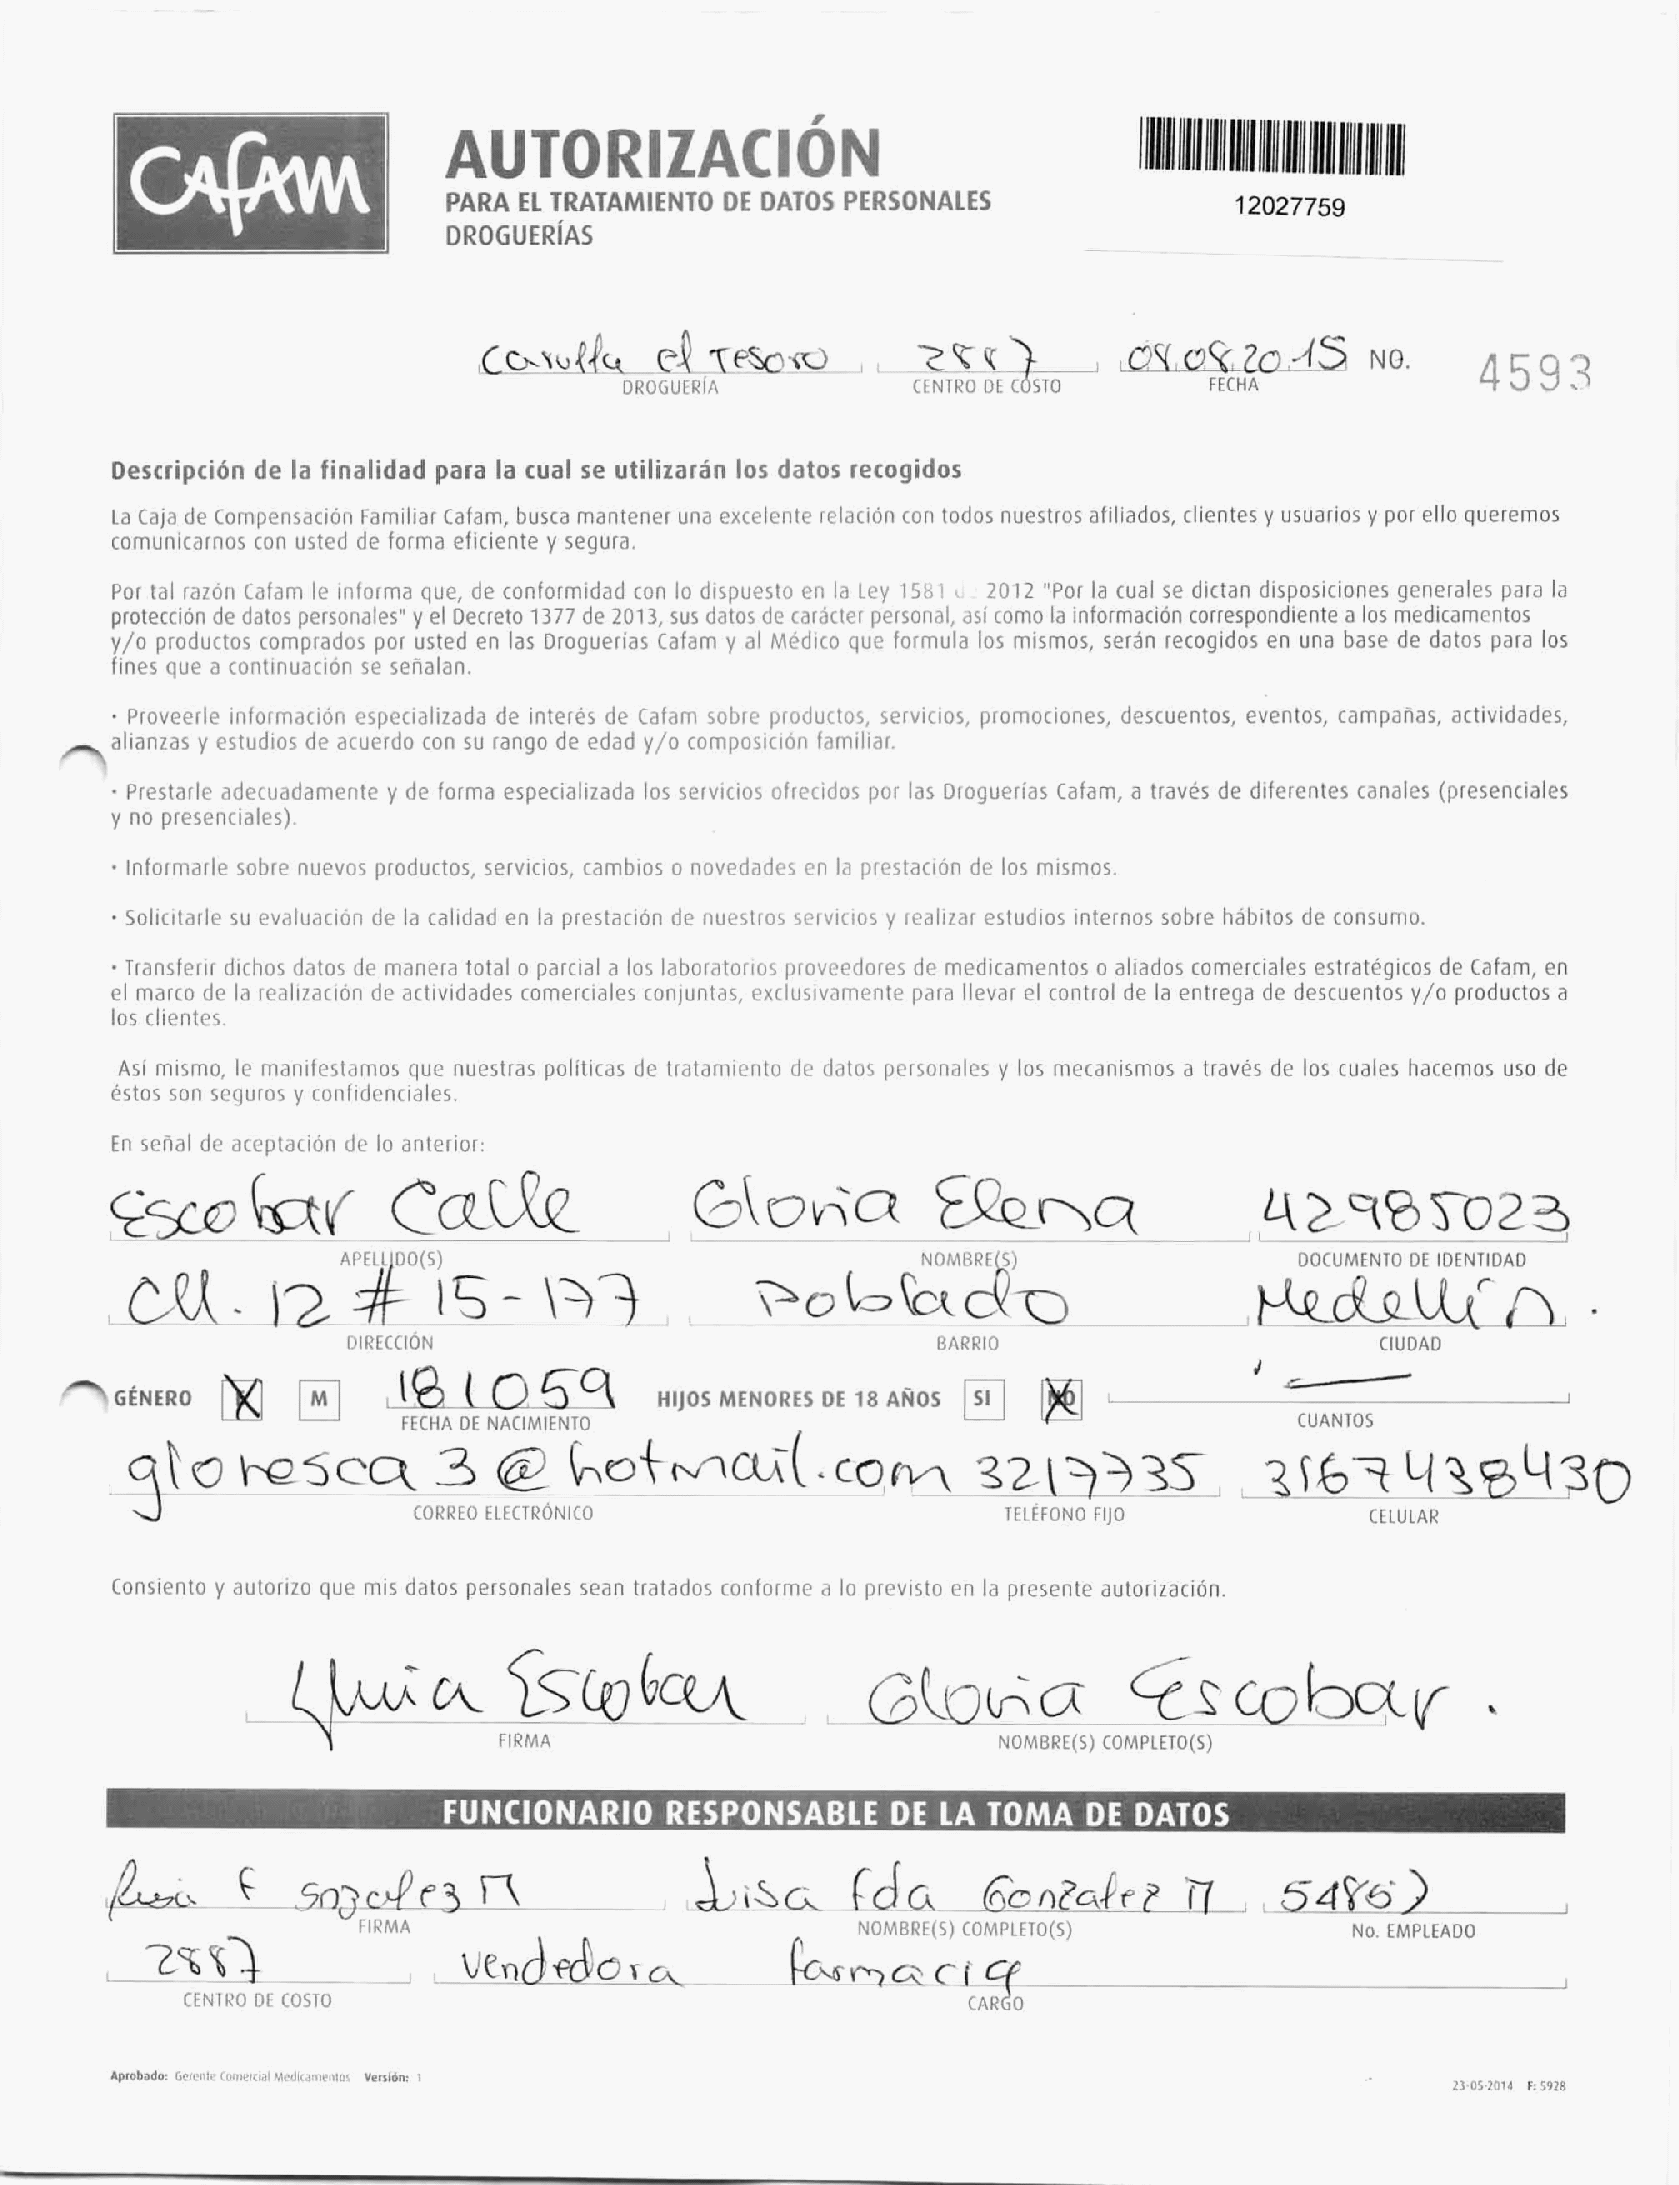 CAFAM
AUTORIZACIÓN
PARA EL TRATAMIENTO DE DATOS PERSONALES
DROGUERÍAS
12027759
Carulla el Tesoro 2887 08.08.2015 NO. 4593
DROGUERÍA CENTRO DE COSTO FECHA
Descripción de la finalidad para la cual se utilizarán los datos recogidos
La Caja de Compensación Familiar Cafam, busca mantener una excelente relación con todos nuestros afiliados, clientes y usuarios y por ello queremos
comunicarnos con usted de forma eficiente y segura.
Por tal razón Cafam le informa que, de conformidad con lo dispuesto en la Ley 1581 d. 2012 "Por la cual se dictan disposiciones generales para la
protección de datos personales" y el Decreto 1377 de 2013, sus datos de carácter personal, así como la información correspondiente a los medicamentos
y/o productos comprados por usted en las Droguerías Cafam y al Médico que formula los mismos, serán recogidos en una base de datos para los
fines que a continuación se señalan.
· Proveerle información especializada de interés de Cafam sobre productos, servicios, promociones, descuentos, eventos, campañas, actividades,
alianzas y estudios de acuerdo con su rango de edad y/o composición familiar.
· Prestarle adecuadamente y de forma especializada los servicios ofrecidos por las Droguerías Cafam, a través de diferentes canales (presenciales
y no presenciales).
· Informarle sobre nuevos productos, servicios, cambios o novedades en la prestación de los mismos.
· Solicitarle su evaluación de la calidad en la prestación de nuestros servicios y realizar estudios internos sobre hábitos de consumo.
· Transferir dichos datos de manera total o parcial a los laboratorios proveedores de medicamentos o aliados comerciales estratégicos de Cafam, en
el marco de la realización de actividades comerciales conjuntas, exclusivamente para llevar el control de la entrega de descuentos y/o productos a
los clientes.
Así mismo, le manifestamos que nuestras políticas de tratamiento de datos personales y los mecanismos a través de los cuales hacemos uso de
éstos son seguros y confidenciales.
En señal de aceptación de lo anterior:
Escobar Calle Gloria Elena 42985023
APELLIDO(S) NOMBRE(S) DOCUMENTO DE IDENTIDAD
Cll. 12 # 15-177 Poblado Medellín.
DIRECCIÓN BARRIO CIUDAD
GÉNERO X M 181059 HIJOS MENORES DE 18 AÑOS SI NO
FECHA DE NACIMIENTO CUANTOS
gloresca3@hotmail.com 3217735 3167438430
CORREO ELECTRÓNICO TELÉFONO FIJO CELULAR
Consiento y autorizo que mis datos personales sean tratados conforme a lo previsto en la presente autorización.
Escobar Gloria Escobar.
FIRMA NOMBRE(S) COMPLETO(S)
FUNCIONARIO RESPONSABLE DE LA TOMA DE DATOS
F Gonzalez M Luisa fda Gonzalez M 54867
FIRMA NOMBRE(S) COMPLETO(S) No. EMPLEADO
2887 vendedora farmacia
CENTRO DE COSTO CARGO
Aprobado: Gerente Comercial Medicamentos Versión: 1
23-05-2014 F: 5928